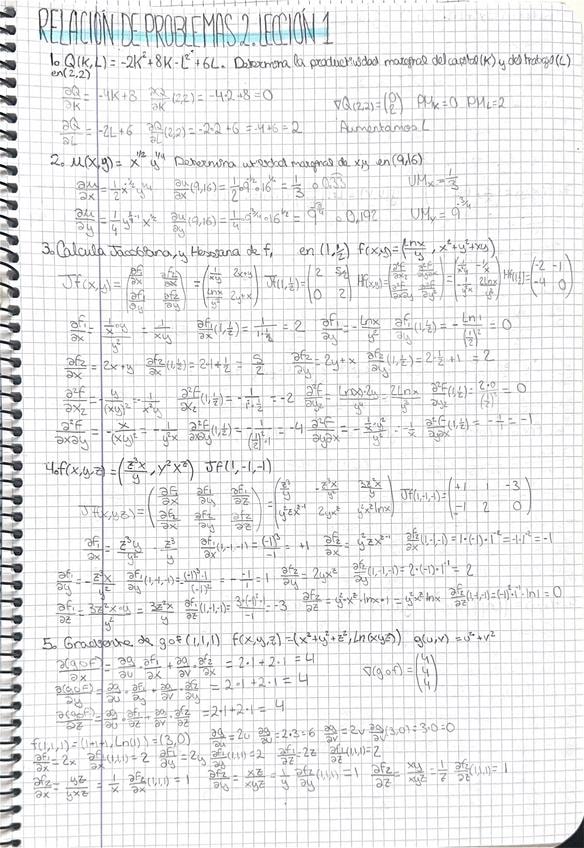 RELACIÓN DE PROBLEMAS 2. LECCIÓN 1
1. Q(K,L) = -2K² + 8K - L² + 6L. Determina la productividad marginal del capital (K) y del trabajo (L)
en (2,2)
∂Q/∂K = -4K+8 ∂Q/∂K (2,2) = -4·2+8 = 0 ∇Q(2,2) = (0 2) PMK = 0 PML = 2
∂Q/∂L = -2L+6 ∂Q/∂L (2,2) = -2·2+6 = -4+6 = 2 Aumentamos L
2. u(x,y) = x^1/2 y^1/4 Determina utilidad marginal de x,y en (9,16)
∂u/∂x = 1/2 x^-1/2 y^1/4 ∂u/∂x (9,16) = 1/2 · 9^-1/2 · 16^1/4 = 1/3 ≈ 0.33 UMx = 1/3
∂u/∂y = 1/4 y^-3/4 x^1/2 ∂u/∂y (9,16) = 1/4 9 16 = 9^-3/4 ≈ 0,192 UMy = 9^-3/4
3. Calcula Jacobiana, y Hessiana de f, en (1,1/2) f(x,y) = (lnx/y, x²+y²+xy)
Jf(x,y) = (∂f1/∂x ∂f2/∂x ∂f1/∂y ∂f2/∂y) = (1/xy 2x+y lnx/y² 2y+x) Jf(1,1/2) = (2 5/2 0 2) Hf(x,y) = Hf(1,1/2) = (-2 -1 -4 0)
∂f1/∂x = 1/x·y / y² = 1/xy ∂f1/∂x (1,1/2) = 1/1·1/2 = 2 ∂f1/∂y = -lnx/y² ∂f1/∂y (1,1/2) = -ln1/(1/2)² = 0
∂f2/∂x = 2x+y ∂f2/∂x (1,1/2) = 2·1+1/2 = 5/2 ∂f2/∂y = 2y+x ∂f2/∂y (1,1/2) = 2·1/2+1 = 2
∂²f/∂x2 = -y/(xy)² = -1/x²y ∂²f/∂x2 (1,1/2) = -1/1²·1/2 = -2 ∂²f/∂y2 = (lnx)·2y/y⁴ = 2lnx/y³ ∂²f/∂y2 (1,1/2) = 2·0/(1/2)³ = 0
∂²f/∂x∂y = -x/(xy)² = -1/y²x ∂²f/∂x∂y (1,1/2) = -1/(1/2)²·1 = -4 ∂²f/∂y∂x = -1/x ∂²f/∂y∂x (1,1/2) = -1/1 = -1
4. f(x,y,z) = (z³x/y, y²x^z) Jf(1,-1,-1)
Jf(x,y,z) = (∂f1/∂x ∂f1/∂y ∂f1/∂z ∂f2/∂x ∂f2/∂y ∂f2/∂z) = (z³/y -z³x/y² 3z²x/y y²zx^z-1 2yx^z y²x^z lnx) Jf(1,-1,-1) = (+1 1 -3 -1 2 0)
∂f1/∂x = z³y/y² = z³/y ∂f1/∂x (1,-1,-1) = (-1)³/-1 = +1 ∂f2/∂x = y²zx^z-1 ∂f2/∂x (1,-1,-1) = 1·(-1)·1^-2 = -1·1^-2 = -1
∂f1/∂y = -z³x/y² ∂f1/∂y (1,-1,-1) = -(-1)³·1/(-1)² = -(-1)/1 = 1 ∂f2/∂y = 2yx^z ∂f2/∂y (1,-1,-1) = 2·(-1)·1^-1 = 2
∂f1/∂z = 3z²x·y/y² = 3z²x/y ∂f1/∂z (1,-1,-1) = 3·(-1)²·1/-1 = -3 ∂f2/∂z = y²·x^z·lnx·1 = y²x^z lnx ∂f2/∂z (1,-1,-1) = (-1)²·1^-1·ln1 = 0
5. Gradiente de gof (1,1,1) f(x,y,z) = (x²+y²+z², ln(xyz)) g(u,v) = u²+v²
∂(gof)/∂x = ∂g/∂u·∂f1/∂x + ∂g/∂v·∂f2/∂x = 2·1+2·1 = 4 ∇(gof) = (4 4 4)
∂(gof)/∂y = ∂g/∂u·∂f1/∂y + ∂g/∂v·∂f2/∂y = 2·1+2·1 = 4
∂(gof)/∂z = ∂g/∂u·∂f1/∂z + ∂g/∂v·∂f2/∂z = 2·1+2·1 = 4
f(1,1,1) = (1+1+1, ln(1)) = (3,0) ∂g/∂u = 2u ∂g/∂u = 2·3 = 6 ∂g/∂v = 2v ∂g/∂v (3,0) = 3·0 = 0
∂f1/∂x = 2x ∂f1/∂x (1,1,1) = 2 ∂f1/∂y = 2y ∂f1/∂y (1,1,1) = 2 ∂f1/∂z = 2z ∂f1/∂z (1,1,1) = 2
∂f2/∂x = yz/yxz = 1/x ∂f2/∂x (1,1,1) = 1 ∂f2/∂y = xz/xyz = 1/y ∂f2/∂y (1,1,1) = 1 ∂f2/∂z = xy/xyz = 1/z ∂f2/∂z (1,1,1) = 1